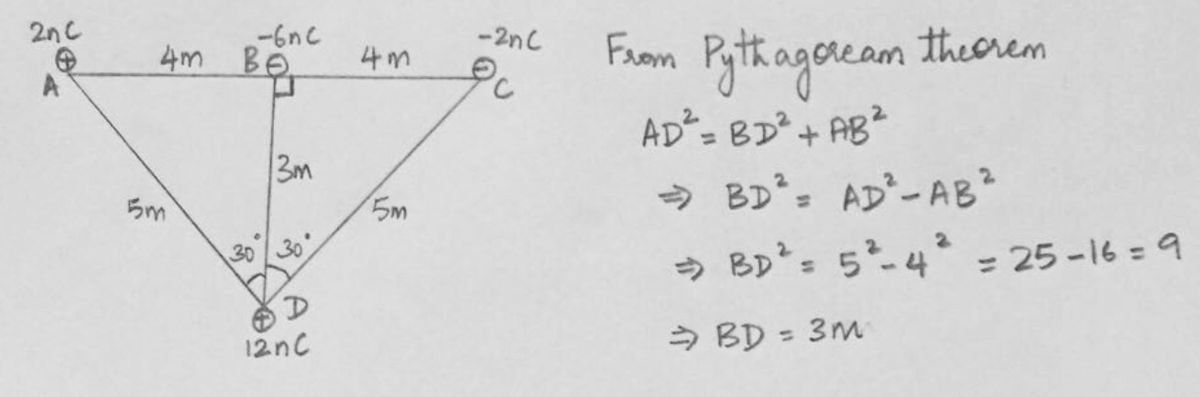 2nC -6nC -2nC
4m B 4m
A C
3m
5m 5m
30° 30°
D
12nC
From Pythagoream theorem
AD² = BD² + AB²
⇒ BD² = AD² - AB²
⇒ BD² = 5² - 4² = 25 - 16 = 9
⇒ BD = 3m